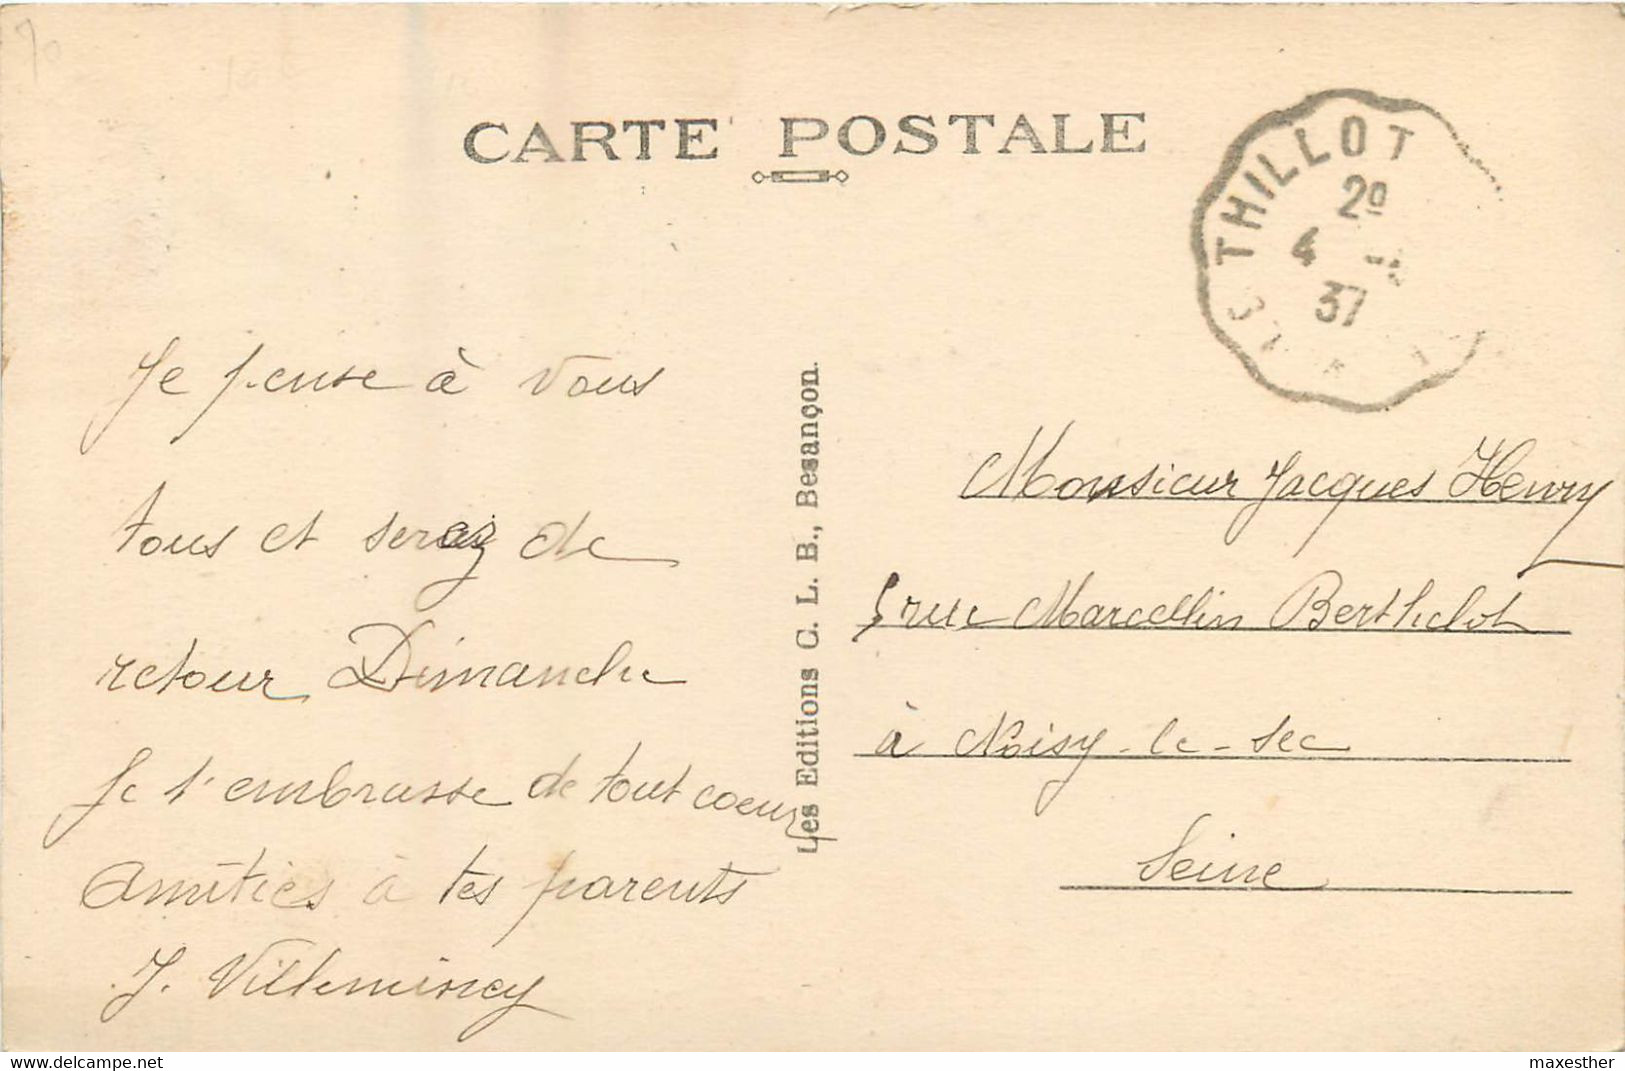 70
CARTE POSTALE
LE THILLOT
20
4
37
Je pense à vous
tous et serez de
retour Dimanche
Je t'embrasse de tout coeur
Amitiés à tes parents
J. Villeminey
Les Editions C. L. B., Besançon.
Monsieur Jacques Henry
5 rue Marcellin Berthelot
à Noisy-le-Sec
Seine
delcampe.net
maxesther